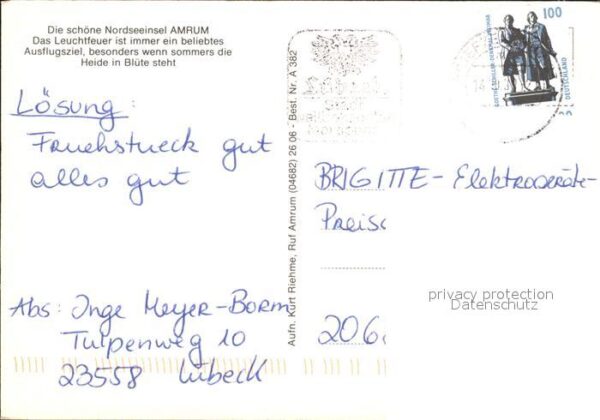 Die schöne Nordseeinsel AMRUM
Das Leuchtfeuer ist immer ein beliebtes
Ausflugsziel, besonders wenn sommers die
Heide in Blüte steht
Lösung:
Fruehstueck gut
alles gut
Abs: Inge Meyer-Borm
Tulpenweg 10
23558 Lübeck
Aufn. Kurt Riehme, Ruf Amrum (04682) 26 06 · Best. Nr. A 382
100
GOETHE-SCHILLER-DENKMAL WEIMAR
DEUTSCHLAND
BRIGITTE-Elektrogeräte-
Preisc
206
privacy protection
Datenschutz